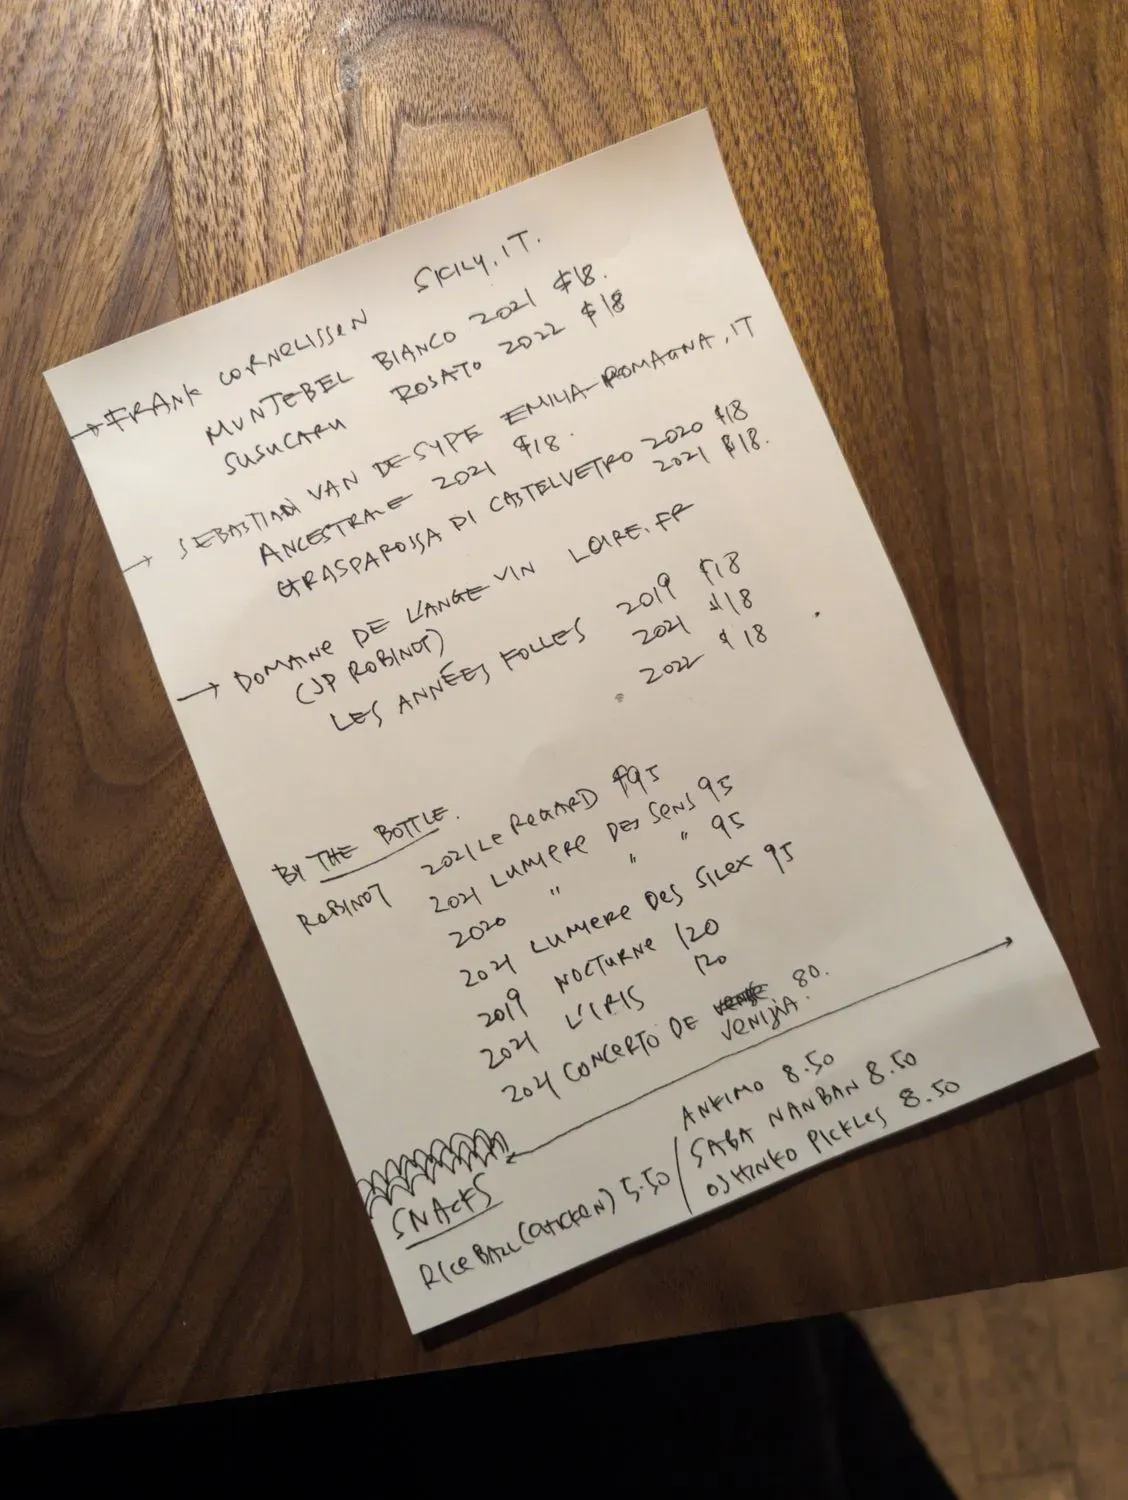 → FRANK CORNELISSEN SICILY, IT.
MUNJEBEL BIANCO 2021 $18.
SUSUCARU ROSATO 2022 $18
→ SEBASTIAN VAN DE SYPE EMILIA-ROMAGNA, IT
ANCESTRALE 2021 $18.
GRASPAROSSA DI CASTELVETRO 2020 $18
2021 $18.
→ DOMAINE DE L'ANGE VIN LOIRE, FR
(JP ROBINOT)
LES ANNÉES FOLLES 2019 $18
2021 $18
2022 $18
BY THE BOTTLE.
ROBINOT 2021 LE REGARD $95
2021 LUMIERE DES SENS 95
2020 " " " 95
2021 LUMIERE DES SILEX 95
2019 NOCTURNE 120
2021 L'IRIS 120
2021 CONCERTO DE VENIZIA. 80.
SNACKS
RICE BALL (CHICKEN) 5.50 /
ANKIMO 8.50
SABA NANBAN 8.50
OSHINKO PICKLES 8.50